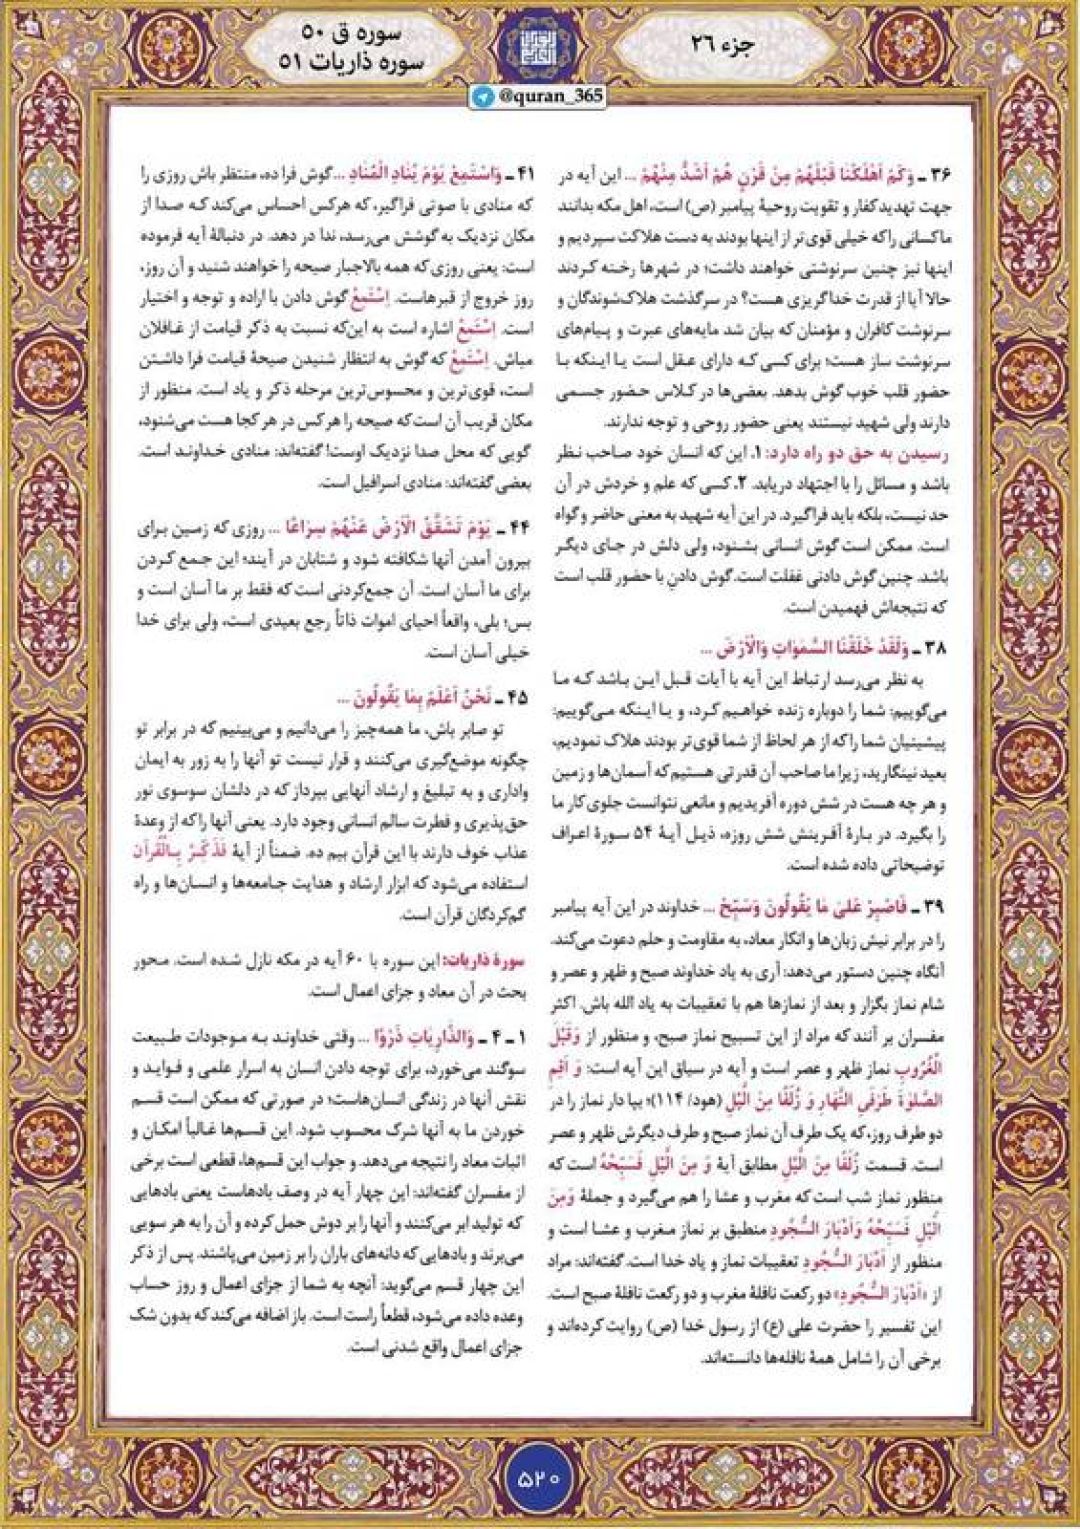 جزء ۲۶
سوره ق ۵۰
سوره ذاریات ۵۱
@quran_365
۳۶ ـ وَكَمْ اَهْلَكْنَا قَبْلَهُمْ مِنْ قَرْنٍ هُمْ اَشَدُّ مِنْهُمْ ... این آیه در
جهت تهدید کفار و تقویت روحیهٔ پیامبر (ص) است، اهل مکه بدانند
ما کسانی را که خیلی قوی‌تر از اینها بودند به دست هلاکت سپردیم و
اینها نیز چنین سرنوشتی خواهند داشت؛ در شهرها رخنه کردند
حالا آیا از قدرت خدا گریزی هست؟ در سرگذشت هلاک‌شوندگان و
سرنوشت کافران و مؤمنان که بیان شد مایه‌های عبرت و پیام‌های
سرنوشت ساز هست؛ برای کسی که دارای عقل است یا اینکه با
حضور قلب خوب گوش بدهد. بعضی‌ها در کلاس حضور جسمی
دارند ولی شهید نیستند یعنی حضور روحی و توجه ندارند.
رسیدن به حق دو راه دارد: ۱. این که انسان خود صاحب نظر
باشد و مسائل را با اجتهاد دریابد. ۲. کسی که علم و خردش در آن
حد نیست، بلکه باید فراگیرد. در این آیه شهید به معنی حاضر و گواه
است. ممکن است گوش انسانی بشنود، ولی دلش در جای دیگر
باشد. چنین گوش دادنی غفلت است. گوش دادنِ با حضور قلب است
که نتیجه‌اش فهمیدن است.
۳۸ ـ وَلَقَدْ خَلَقْنَا السَّمٰوَاتِ وَالْاَرْضَ ...
به نظر می‌رسد ارتباط این آیه با آیات قبل این باشد که ما
می‌گوییم: شما را دوباره زنده خواهیم کرد، و یا اینکه می‌گوییم:
پیشینیان شما را که از هر لحاظ از شما قوی‌تر بودند هلاک نمودیم،
بعید نینگارید، زیرا ما صاحب آن قدرتی هستیم که آسمان‌ها و زمین
و هر چه هست در شش دوره آفریدیم و مانعی نتوانست جلوی کار ما
را بگیرد. در بارهٔ آفرینش شش روزه، ذیل آیهٔ ۵۴ سورهٔ اعراف
توضیحاتی داده شده است.
۳۹ ـ فَاصْبِرْ عَلىٰ مَا يَقُولُونَ وَسَبِّحْ ... خداوند در این آیه پیامبر
را در برابر نیش زبان‌ها و انکار معاد، به مقاومت و حلم دعوت می‌کند.
آنگاه چنین دستور می‌دهد: آری به یاد خداوند صبح و ظهر و عصر و
شام نماز بگزار و بعد از نمازها هم با تعقیبات به یاد الله باش. اکثر
مفسران بر آنند که مراد از این تسبیح نماز صبح، و منظور از وَقَبْلَ
الْغُرُوبِ نماز ظهر و عصر است و آیه در سیاق این آیه است: وَ اَقِمِ
الصَّلوٰةَ طَرَفَيِ النَّهَارِ وَ زُلَفًا مِنَ الَّيْلِ (هود/ ۱۱۴)؛ بپا دار نماز را در
دو طرف روز، که یک طرف آن نماز صبح و طرف دیگرش ظهر و عصر
است. قسمت زُلَفًا مِنَ الَّيْلِ مطابق آیهٔ وَ مِنَ الَّيْلِ فَسَبِّحْهُ است که
منظور نماز شب است که مغرب و عشا را هم می‌گیرد و جملهٔ وَمِنَ
الَّيْلِ فَسَبِّحْهُ وَاَدْبَارَ السُّجُودِ منطبق بر نماز مغرب و عشا است و
منظور از اَدْبَارَ السُّجُودِ تعقیبات نماز و یاد خدا است. گفته‌اند: مراد
از «اَدْبَارَ السُّجُودِ» دو رکعت نافلهٔ مغرب و دو رکعت نافلهٔ صبح است.
این تفسیر را حضرت علی (ع) از رسول خدا (ص) روایت کرده‌اند و
برخی آن را شامل همهٔ نافله‌ها دانسته‌اند.
۴۱ ـ وَاسْتَمِعْ يَوْمَ يُنَادِ الْمُنَادِ ... گوش فرا ده، منتظر باش روزی را
که منادی با صوتی فراگیر، که هرکس احساس می‌کند که صدا از
مکان نزدیک به گوشش می‌رسد، ندا در دهد. در دنبالهٔ آیه فرموده
است: یعنی روزی که همه بالاجبار صیحه را خواهند شنید و آن روز،
روز خروج از قبرهاست. اِسْتَمِعْ گوش دادن با اراده و توجه و اختیار
است. اِسْتَمِعْ اشاره است به این‌که نسبت به ذکر قیامت از غافلان
مباش. اِسْتَمِعْ که گوش به انتظار شنیدن صیحهٔ قیامت فرا داشتن
است، قوی‌ترین و محسوس‌ترین مرحله ذکر و یاد است. منظور از
مکان قریب آن است که صیحه را هرکس در هر کجا هست می‌شنود،
گویی که محل صدا نزدیک اوست! گفته‌اند: منادی خداوند است.
بعضی گفته‌اند: منادی اسرافیل است.
۴۴ ـ يَوْمَ تَشَقَّقُ الْاَرْضُ عَنْهُمْ سِرَاعًا ... روزی که زمین برای
بیرون آمدن آنها شکافته شود و شتابان در آیند؛ این جمع کردن
برای ما آسان است. آن جمع‌کردنی است که فقط بر ما آسان است و
بس؛ بلی، واقعاً احیای اموات ذاتاً رجع بعیدی است، ولی برای خدا
خیلی آسان است.
۴۵ ـ نَحْنُ اَعْلَمُ بِمَا يَقُولُونَ ...
تو صابر باش، ما همه‌چیز را می‌دانیم و می‌بینیم که در برابر تو
چگونه موضع‌گیری می‌کنند و قرار نیست تو آنها را به زور به ایمان
واداری و به تبلیغ و ارشاد آنهایی بپرداز که در دلشان سوسوی نور
حق‌پذیری و فطرت سالم انسانی وجود دارد. یعنی آنها را که از وعدهٔ
عذاب خوف دارند با این قرآن بیم ده. ضمناً از آیهٔ فَذَكِّرْ بِالْقُرْاٰنِ
استفاده می‌شود که ابزار ارشاد و هدایت جامعه‌ها و انسان‌ها و راه
گم‌کردگان قرآن است.
سورهٔ ذاریات: این سوره با ۶۰ آیه در مکه نازل شده است. محور
بحث در آن معاد و جزای اعمال است.
۱ ـ ۴ ـ وَالذَّارِيَاتِ ذَرْوًا ... وقتی خداوند به موجودات طبیعت
سوگند می‌خورد، برای توجه دادن انسان به اسرار علمی و فواید و
نقش آنها در زندگی انسان‌هاست؛ در صورتی که ممکن است قسم
خوردن ما به آنها شرک محسوب شود. این قسم‌ها غالباً امکان و
اثبات معاد را نتیجه می‌دهد. و جواب این قسم‌ها، قطعی است برخی
از مفسران گفته‌اند: این چهار آیه در وصف بادهاست یعنی بادهایی
که تولید ابر می‌کنند و آنها را بر دوش حمل کرده و آن را به هر سویی
می‌برند و بادهایی که دانه‌های باران را بر زمین می‌پاشند. پس از ذکر
این چهار قسم می‌گوید: آنچه به شما از جزای اعمال و روز حساب
وعده داده می‌شود، قطعاً راست است. باز اضافه می‌کند که بدون شک
جزای اعمال واقع شدنی است.
۵۲۰